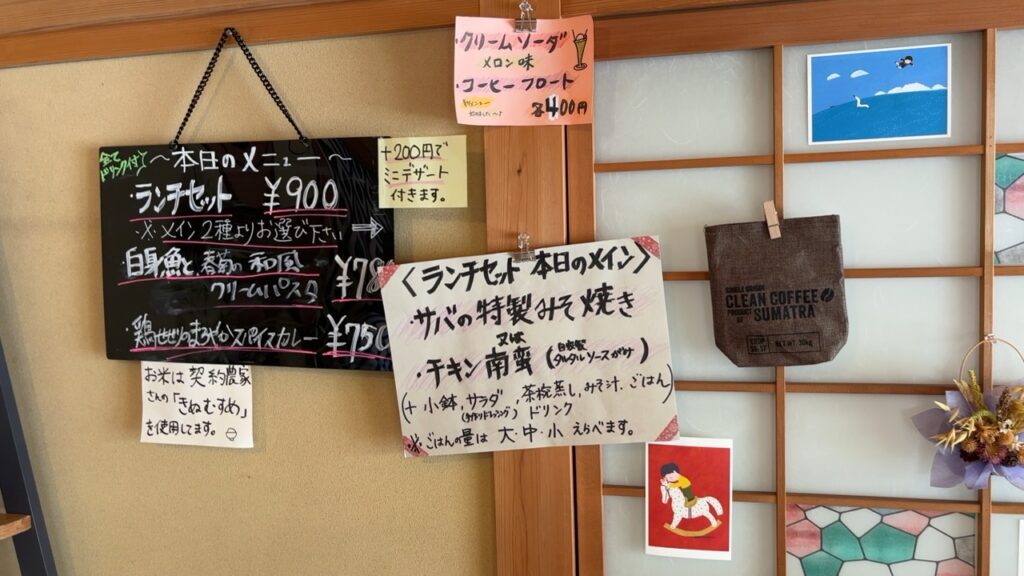 全てドリンク付
～本日のメニュー～
ランチセット ¥900
※メイン2種よりお選び下さい
白身魚と春菊の和風
クリームパスタ ¥78
鶏せせりのまろやかスパイスカレー ¥750
+200円で
ミニデザート
付きます。
お米は契約農家
さんの「きぬむすめ」
を使用してます。
・クリームソーダ
メロン味
・コーヒーフロート
各400円
〈ランチセット 本日のメイン〉
・サバの特製みそ焼き
又は
・チキン南蛮(自家製タルタルソースがけ)
(+小鉢,サラダ,茶碗蒸し,みそ汁,ごはん
(手作りドレッシング) ドリンク)
※ごはんの量は 大・中・小 えらべます。
SINGLE ORIGIN
CLEAN COFFEE
PRODUCT OF SUMATRA
NET WT 30kg